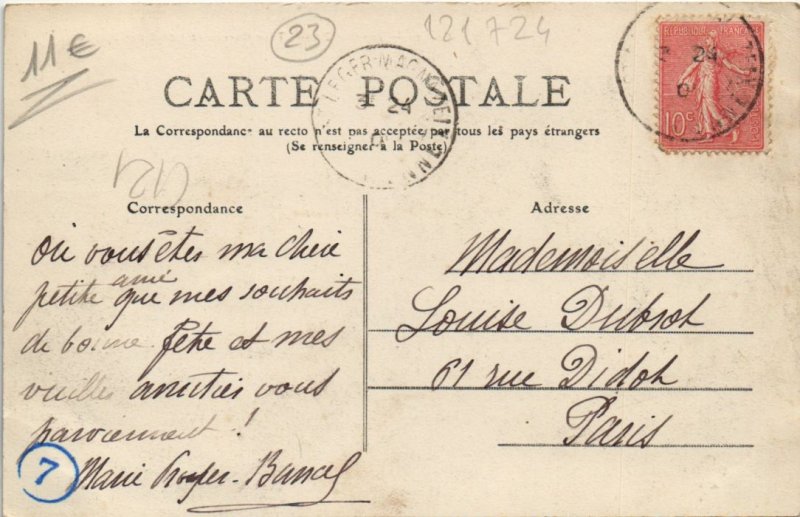 11€
23
121724
REPUBLIQUE FRANÇAISE
10c
24
LEGER-MAGN
3 24
CARTE POSTALE
La Correspondance au recto n'est pas acceptée par tous les pays étrangers
(Se renseigner à la Poste)
121
Correspondance
Adresse
Où vous êtes ma chère
petite amie que mes souhaits
de bonne fête et mes
vieilles amitiés vous
parviennent !
Marie
7
Mademoiselle
Louise Dubrot
61 rue Didot
Paris